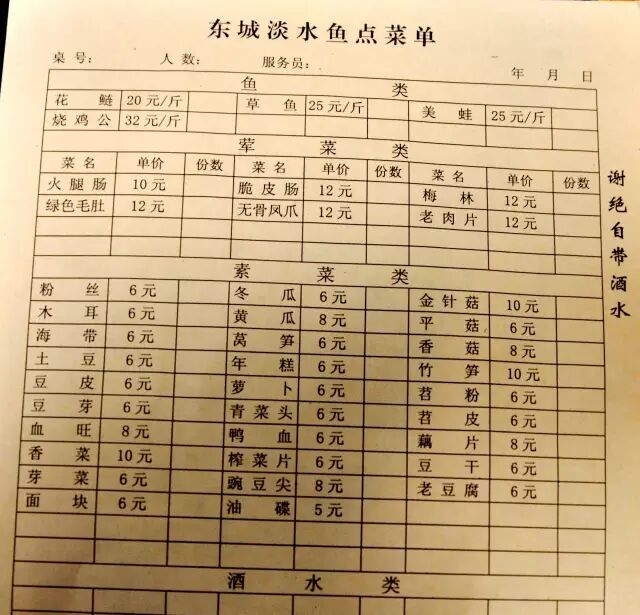 东城淡水鱼点菜单
桌号: 人数: 服务员: 年 月 日
鱼 类
花鲢 20元/斤 草鱼 25元/斤 美蛙 25元/斤
烧鸡公 32元/斤
荤 菜 类
菜名 单价 份数 菜名 单价 份数 菜名 单价 份数
火腿肠 10元 脆皮肠 12元 梅林 12元
绿色毛肚 12元 无骨凤爪 12元 老肉片 12元
素 菜 类
粉丝 6元 冬瓜 6元 金针菇 10元
木耳 6元 黄瓜 8元 平菇 6元
海带 6元 莴笋 6元 香菇 8元
土豆 6元 年糕 6元 竹笋 10元
豆皮 6元 萝卜 6元 苕粉 6元
豆芽 6元 青菜头 6元 苕皮 6元
血旺 8元 鸭血 6元 藕片 8元
香菜 10元 榨菜片 6元 豆干 6元
芽菜 6元 豌豆尖 8元 老豆腐 6元
面块 6元 油碟 5元
酒 水 类
谢绝自带酒水